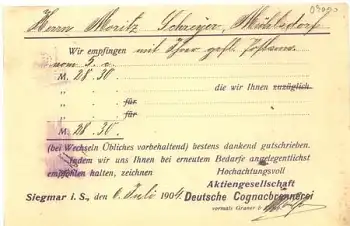 Herrn Moritz Schreyer, Mühlsdorf
Wir empfingen mit Ihrer gefl. Zuschrift
vom 5. c.
M. 28.30.
" .
die wir Ihnen zuzüglich
" . für
" . für
M. 28.30.
(bei Wechseln Übliches vorbehaltend) bestens dankend gutschrieben.
Indem wir uns Ihnen bei erneutem Bedarfe angelegentlichst
empfohlen halten, zeichnen Hochachtungsvoll
Aktiengesellschaft
Siegmar i. S., den 6. Juli 1904. Deutsche Cognacbrennerei
vormals Gruner &